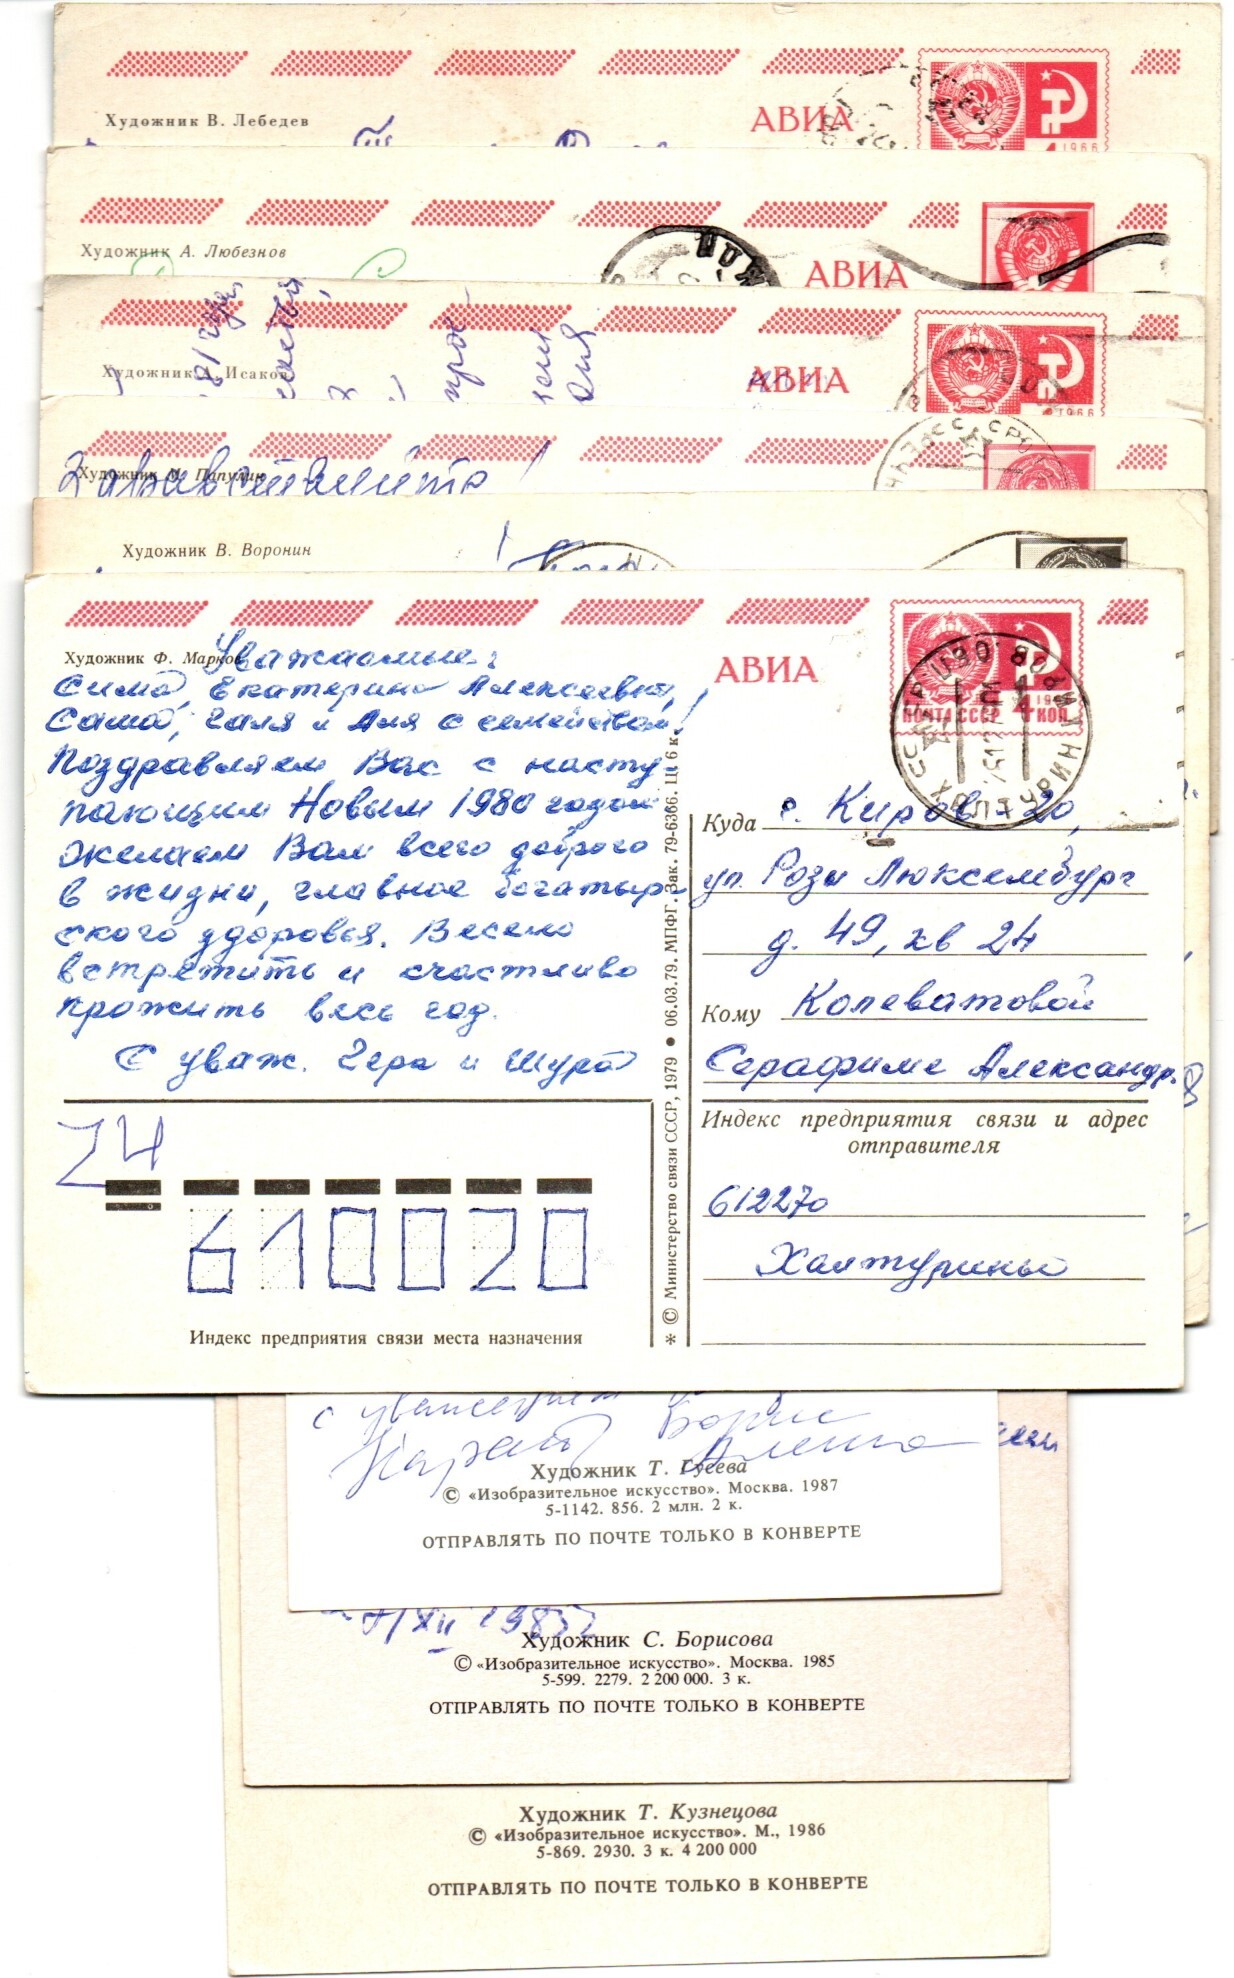 Художник В. Лебедев
АВИА
1966
Художник А. Любезнов
АВИА
Художник А. Исаков
АВИА
1966
Художник М. Папулин
Здравствуйте!
Художник В. Воронин
Художник Ф. Марков
АВИА
ПОЧТА СССР 4 КОП
Уважаемые:
Сима, Екатерина Алексеевна,
Саша, Галя и Аля с семейством!
Поздравляем Вас с насту-
пающим Новым 1980 годом
желаем Вам всего доброго
в жизни, главное богатыр-
ского здоровья. Весело
встретить и счастливо
прожить весь год.
С уваж. Гера и Шура
24
610020
Индекс предприятия связи места назначения
* © Министерство связи СССР, 1979 ● 06.03.79. МПФГ. Зак. 79-6366. Ц. 6 к.
Куда г. Киров-20,
ул. Розы Люксембург
д. 49, кв 24
Кому Колеватовой
Серафиме Александр.
Индекс предприятия связи и адрес
отправителя
612270
Халтурины
с уважением
Борис
Художник Т. Гусева
© «Изобразительное искусство». Москва. 1987
5-1142. 856. 2 млн. 2 к.
ОТПРАВЛЯТЬ ПО ПОЧТЕ ТОЛЬКО В КОНВЕРТЕ
Художник С. Борисова
© «Изобразительное искусство». Москва. 1985
5-599. 2279. 2 200 000. 3 к.
ОТПРАВЛЯТЬ ПО ПОЧТЕ ТОЛЬКО В КОНВЕРТЕ
Художник Т. Кузнецова
© «Изобразительное искусство». М., 1986
5-869. 2930. 3 к. 4 200 000
ОТПРАВЛЯТЬ ПО ПОЧТЕ ТОЛЬКО В КОНВЕРТЕ